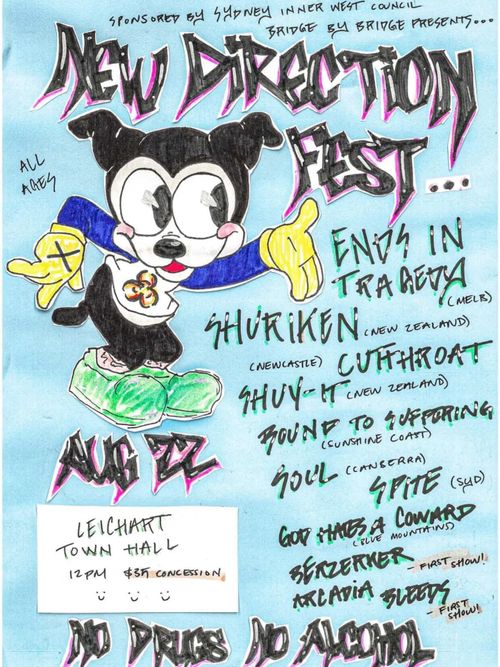 SPONSORED BY SYDNEY INNER WEST COUNCIL
BRIDGE BY BRIDGE PRESENTS...
NEW DIRECTION
FEST...
ALL
AGES
X
ENDS IN
TRAGEDY
(MELB)
SHURIKEN (NEW ZEALAND)
(NEWCASTLE) CUTTHROAT
SHUV-IT (NEW ZEALAND)
BOUND TO SUFFERING
(SUNSHINE COAST)
SOUL (CANBERRA)
SPITE (SYD)
GOD HATES A COWARD
(BLUE MOUNTAINS)
BERZERKER - FIRST SHOW!
ARCADIA BLEEDS - FIRST
SHOW!
AUG 22
LEICHART
TOWN HALL
12PM $35 CONCESSION
NO DRUGS NO ALCOHOL